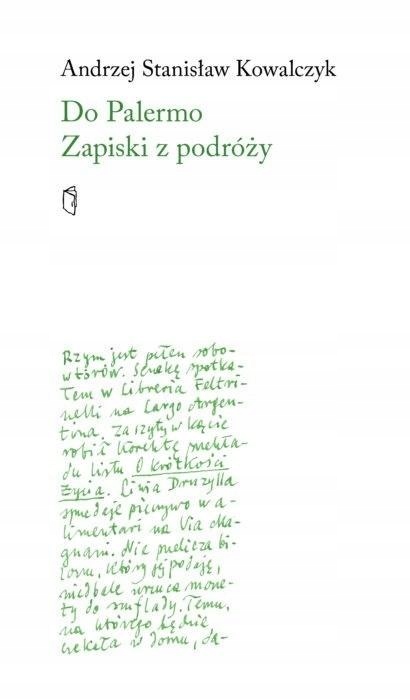 Andrzej Stanisław Kowalczyk
Do Palermo
Zapiski z podróży
Rzym jest pełen sobo-
wtórów. Senekę spotka-
łem w Libreria Feltri-
nelli na Largo Argen-
tina. Zaszyty w kącie
robił korektę przekła-
du listu O krótkości
życia. Liwia Druzylla
sprzedaje pieczywo w a-
limentari na Via Ma-
gnani. Nie przelicza bi-
lonu, który jej podaję,
niedbale wrzuca mone-
ty do szuflady. Temu,
na którego będzie
czekała w domu, da-